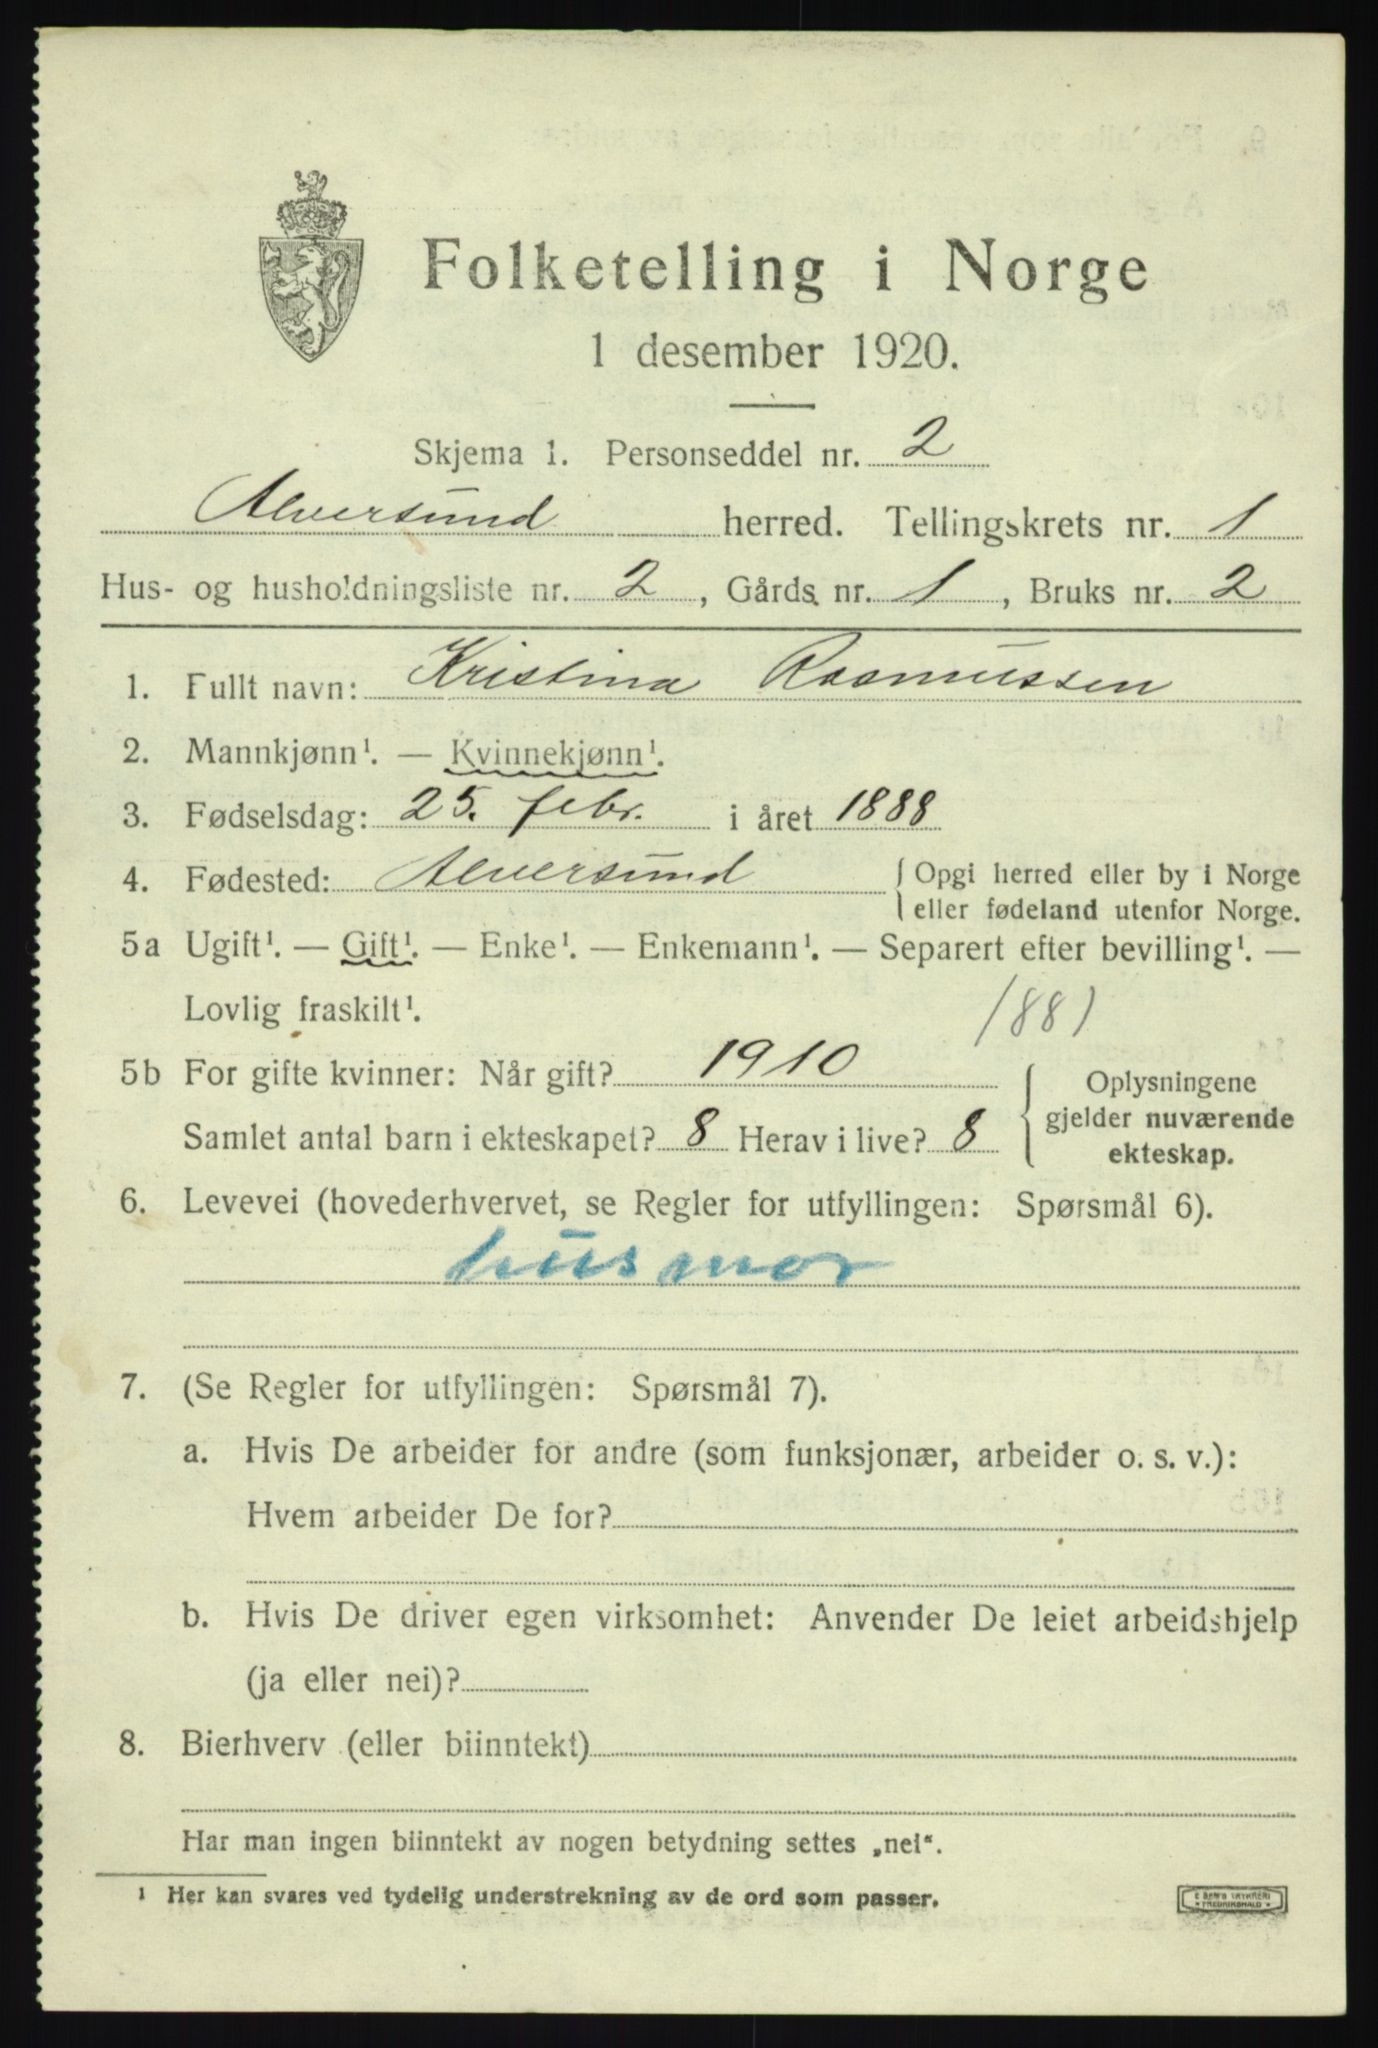 Folketelling i Norge
1 desember 1920.
Skjema 1. Personseddel nr. 2
Alversund herred. Tellingskrets nr. 1
Hus- og husholdningsliste nr. 2, Gårds nr. 1, Bruks nr. 2
1. Fullt navn: Kristina Rasmussen
2. Mannkjønn¹. — Kvinnekjønn¹.
3. Fødselsdag: 25. febr. i året 1888
4. Fødested: Alversund { Opgi herred eller by i Norge
eller fødeland utenfor Norge.
5a Ugift¹. — Gift¹. — Enke¹. — Enkemann¹. — Separert efter bevilling¹. —
Lovlig fraskilt¹.
(88)
5b For gifte kvinner: Når gift? 1910
Samlet antal barn i ekteskapet? 8 Herav i live? 8
{ Oplysningene
gjelder nuværende
ekteskap.
6. Levevei (hovederhvervet, se Regler for utfyllingen: Spørsmål 6).
husmor
7. (Se Regler for utfyllingen: Spørsmål 7).
a. Hvis De arbeider for andre (som funksjonær, arbeider o. s. v.):
Hvem arbeider De for?
b. Hvis De driver egen virksomhet: Anvender De leiet arbeidshjelp
(ja eller nei)?
8. Bierhverv (eller biinntekt)
Har man ingen biinntekt av nogen betydning settes „nei“.
¹ Her kan svares ved tydelig understrekning av de ord som passer.